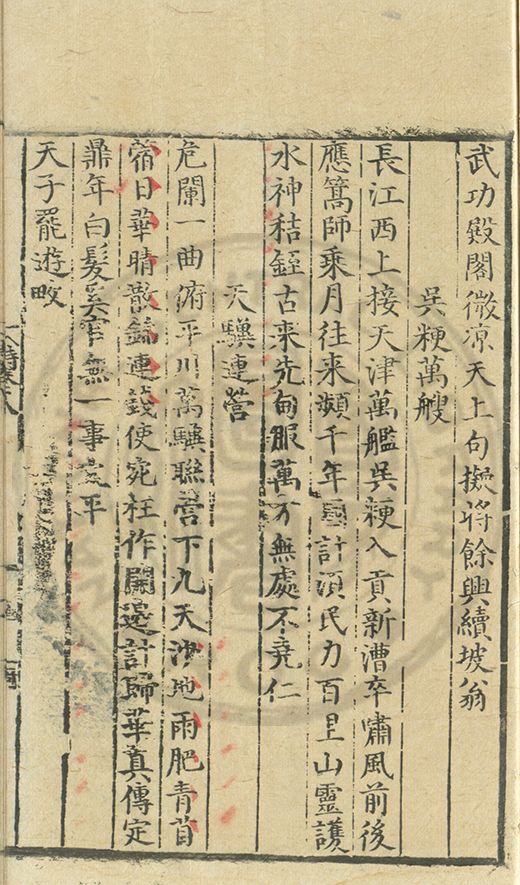 武功殿閣微凉天上句擬將餘興續坡翁
吳粳萬艘
長江西上接天津萬艦吳粳入貢新漕卒嘯風前後
應篙師乘月往来頻千年國計湏民力百里山靈護
水神秸銍古来先甸服萬方無處不堯仁
天驥連營
危闌一曲俯平川萬驥聯營下九天沙地雨肥青苜
蓿日華晴散錦連錢使宛枉作開邊計歸華真傳定
鼎年白髮奚官無一事
平
天子罷遊畋